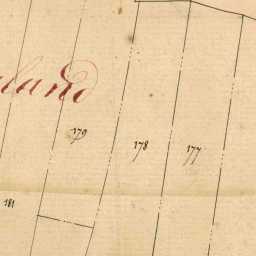 land
179
178
177
181